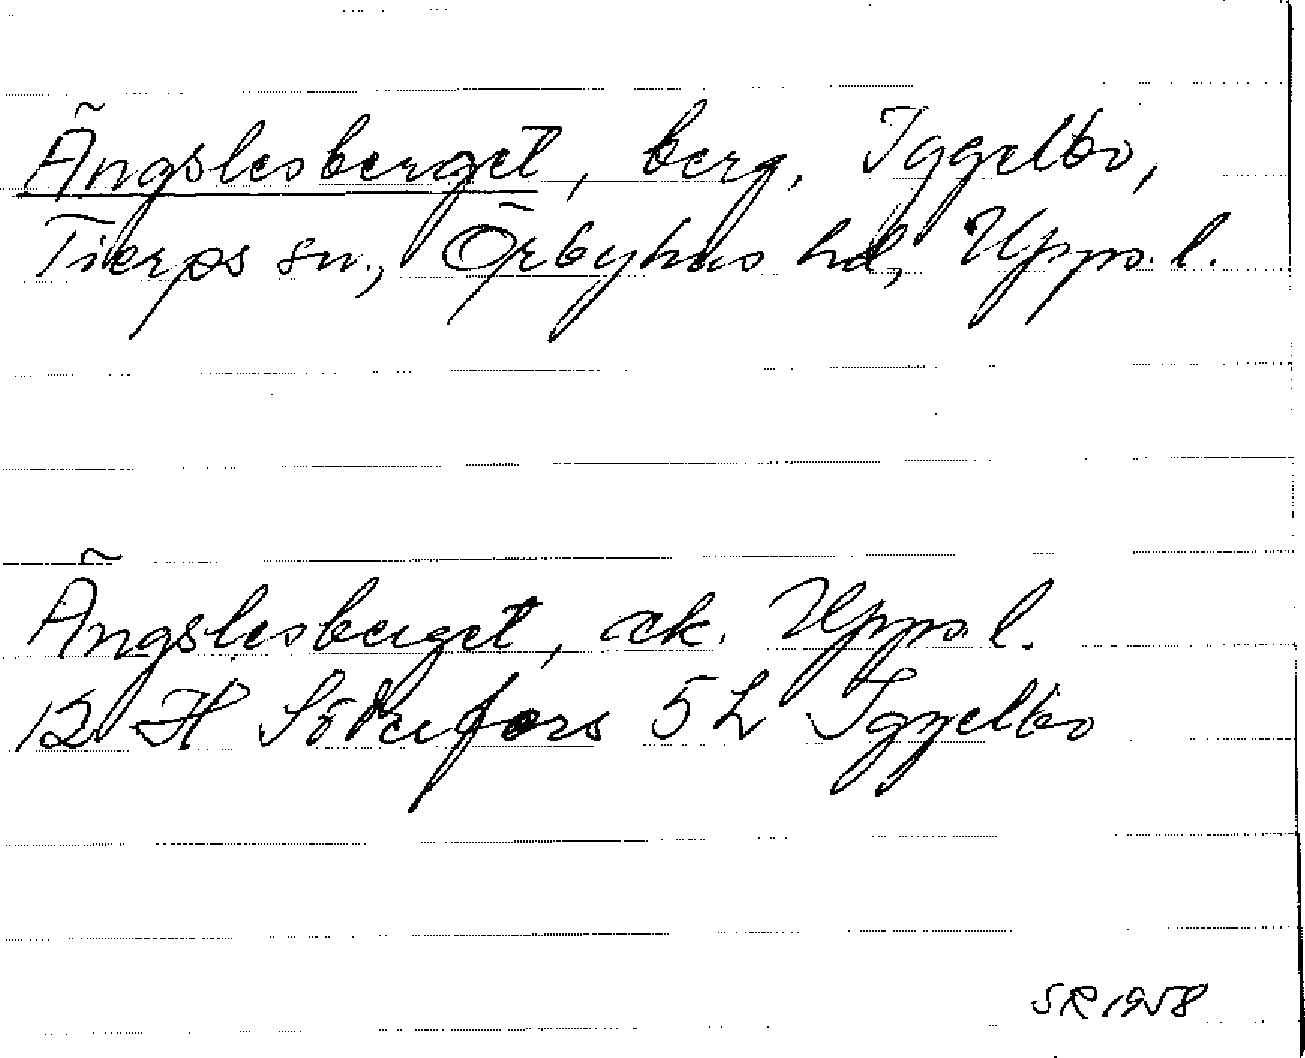 Ängslesberget, berg, Iggelbo,
Tierps sn., Örbyhus hd, Upps. l.
Ängslesberget, ek. Upps. l.
12 H Söderfors 5 h Iggelbo
SR 1958